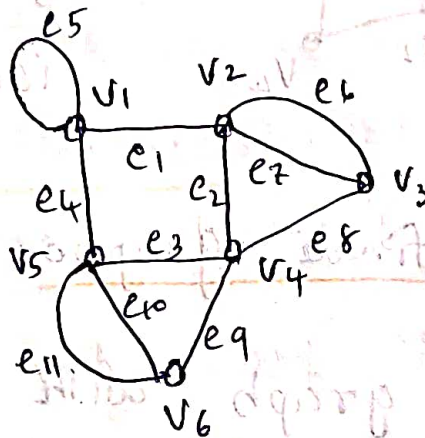 e5
V1
V2
e6
e1
e7
e4
e2
V3
V5
e3
V4
e8
e10
e9
e11
V6